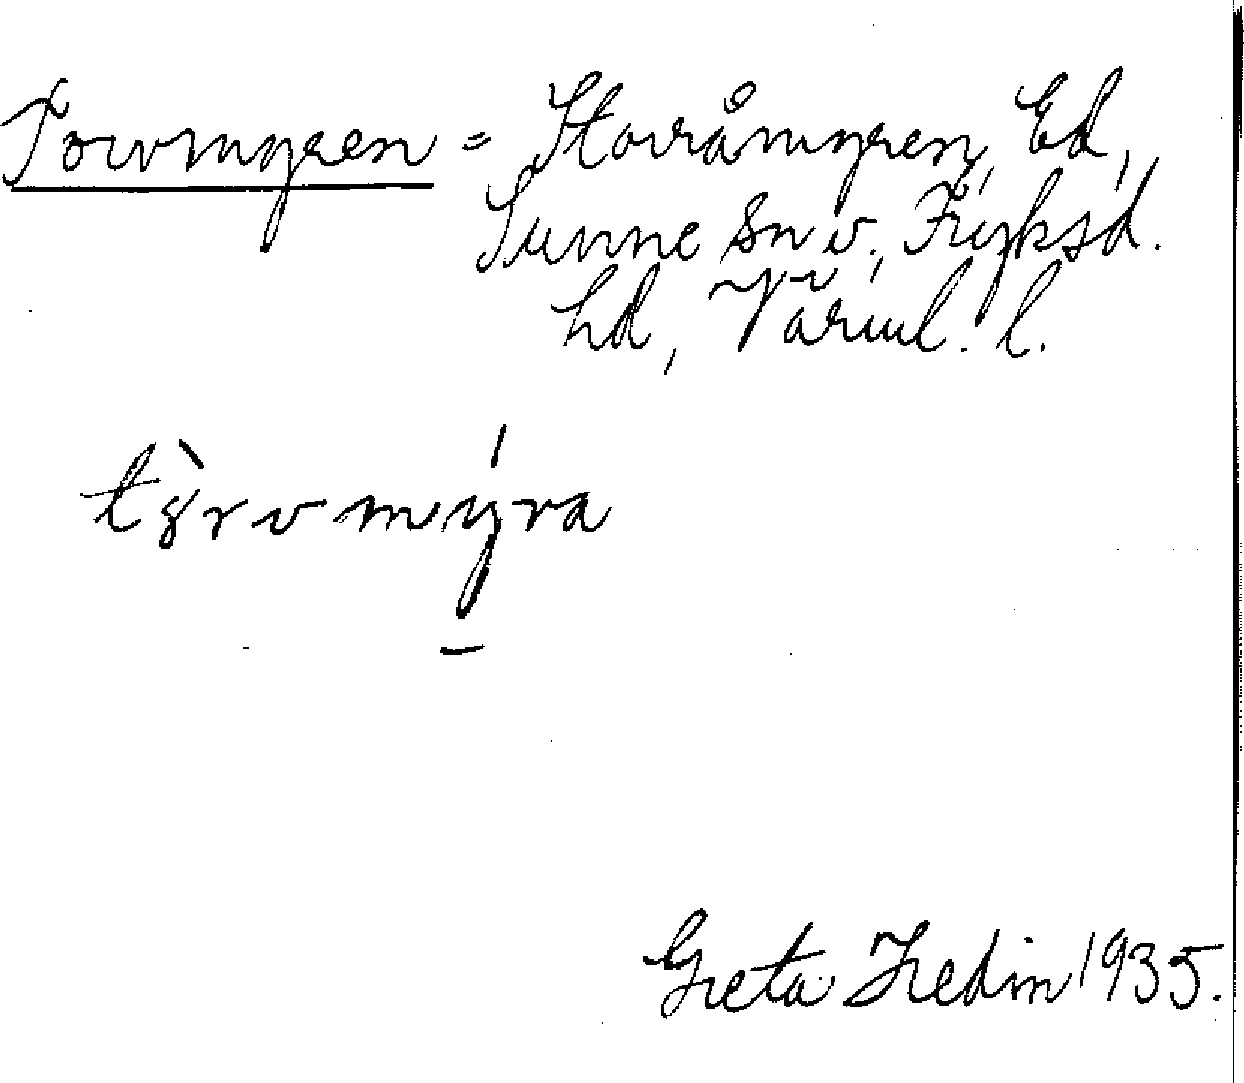 Torvmyren = Storråmyren, Ed,
Sunne sn v., Fryksd.
hd, Värml. l.
tȣ̀rvmýra
Greta Hedin 1935.